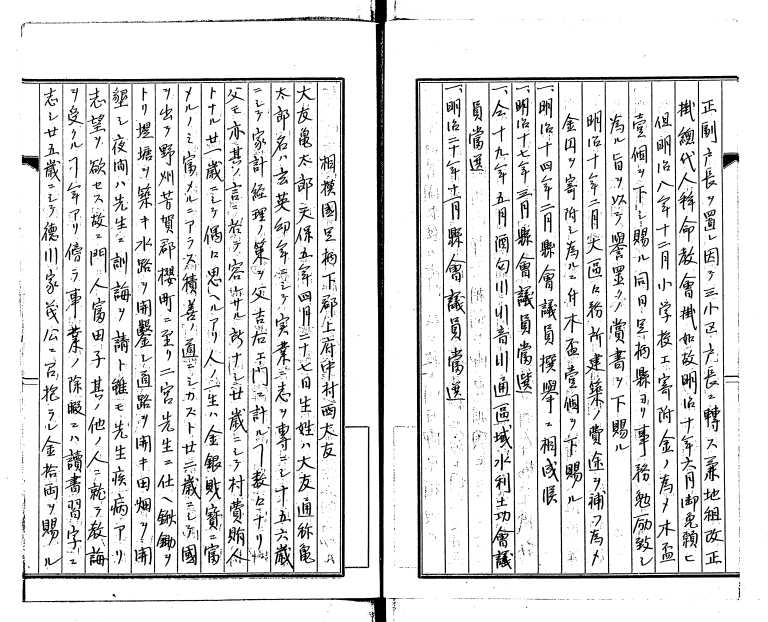 正副戸長ヲ置レ因テ三小区戸長ニ轉ス兼地組改正
掛總代人拜命教會掛如故明治十年六月御免願ヒ
但明治八年十二月小学校エ寄附金ノ為メ木盃
壹個ヲ下シ賜ル同月足柄縣ヨリ事務勉励致シ
為ル旨ヲ以テ譽置クノ賞書ヲ下賜ル
明治十年二月大區々務所建築ノ費途ヲ補フ為メ
金円ヲ寄附シ為ルニ舟木盃壹個ヲ下賜ル
一、明治十四年二月縣會議員撰擧ニ相成候
一、明治十七年三月縣會議員當選
一、仝十九年五月酒匂川川音川通區域水利土功會議
員當選
一、明治二十年十一月縣會議員當選
相模國足柄下郡上府中村西大友
大友亀太郎天保五年四月二十七日生姓ハ大友通称亀
太郎名ハ玄英幼年ニシテ実業ニ志ヲ專ニシ十五六歳
ニシテ家計経理ノ策ヲ父吉右エ門ニ計ルヿ数々ナリ
父モ亦其ノ言ニ若テ容サル所ナシ廿歳ニシテ村賞賄人
トナル廿一歳ニシテ偶々思ヘルアリ人ノ一生ハ金銀財寳ニ富
メルノミ富メルニアラス積善ノ道ニシカストサ二歳ニシテ國
ヲ出テ野州芳賀郡櫻町ニ至リ二宮先生ニ仕ヘ鍬鋤ヲ
トリ堤塘ヲ築キ水路ヲ開鑿シ道路ヲ開キ田畑ヲ開
墾シ夜間ハ先生ニ訓誨ヲ請ト雖モ先生疾病アリ
志望ヲ欲セス故ニ門人富田子其ノ他ノ人ニ就テ教誨
ヲ受クルヿ年アリ傳ラ事業ノ除暇ニハ讀書習字ニ
志シ廿五歳ニシテ德川家茂公ニ召抱ラレ金拾両ヲ賜ル